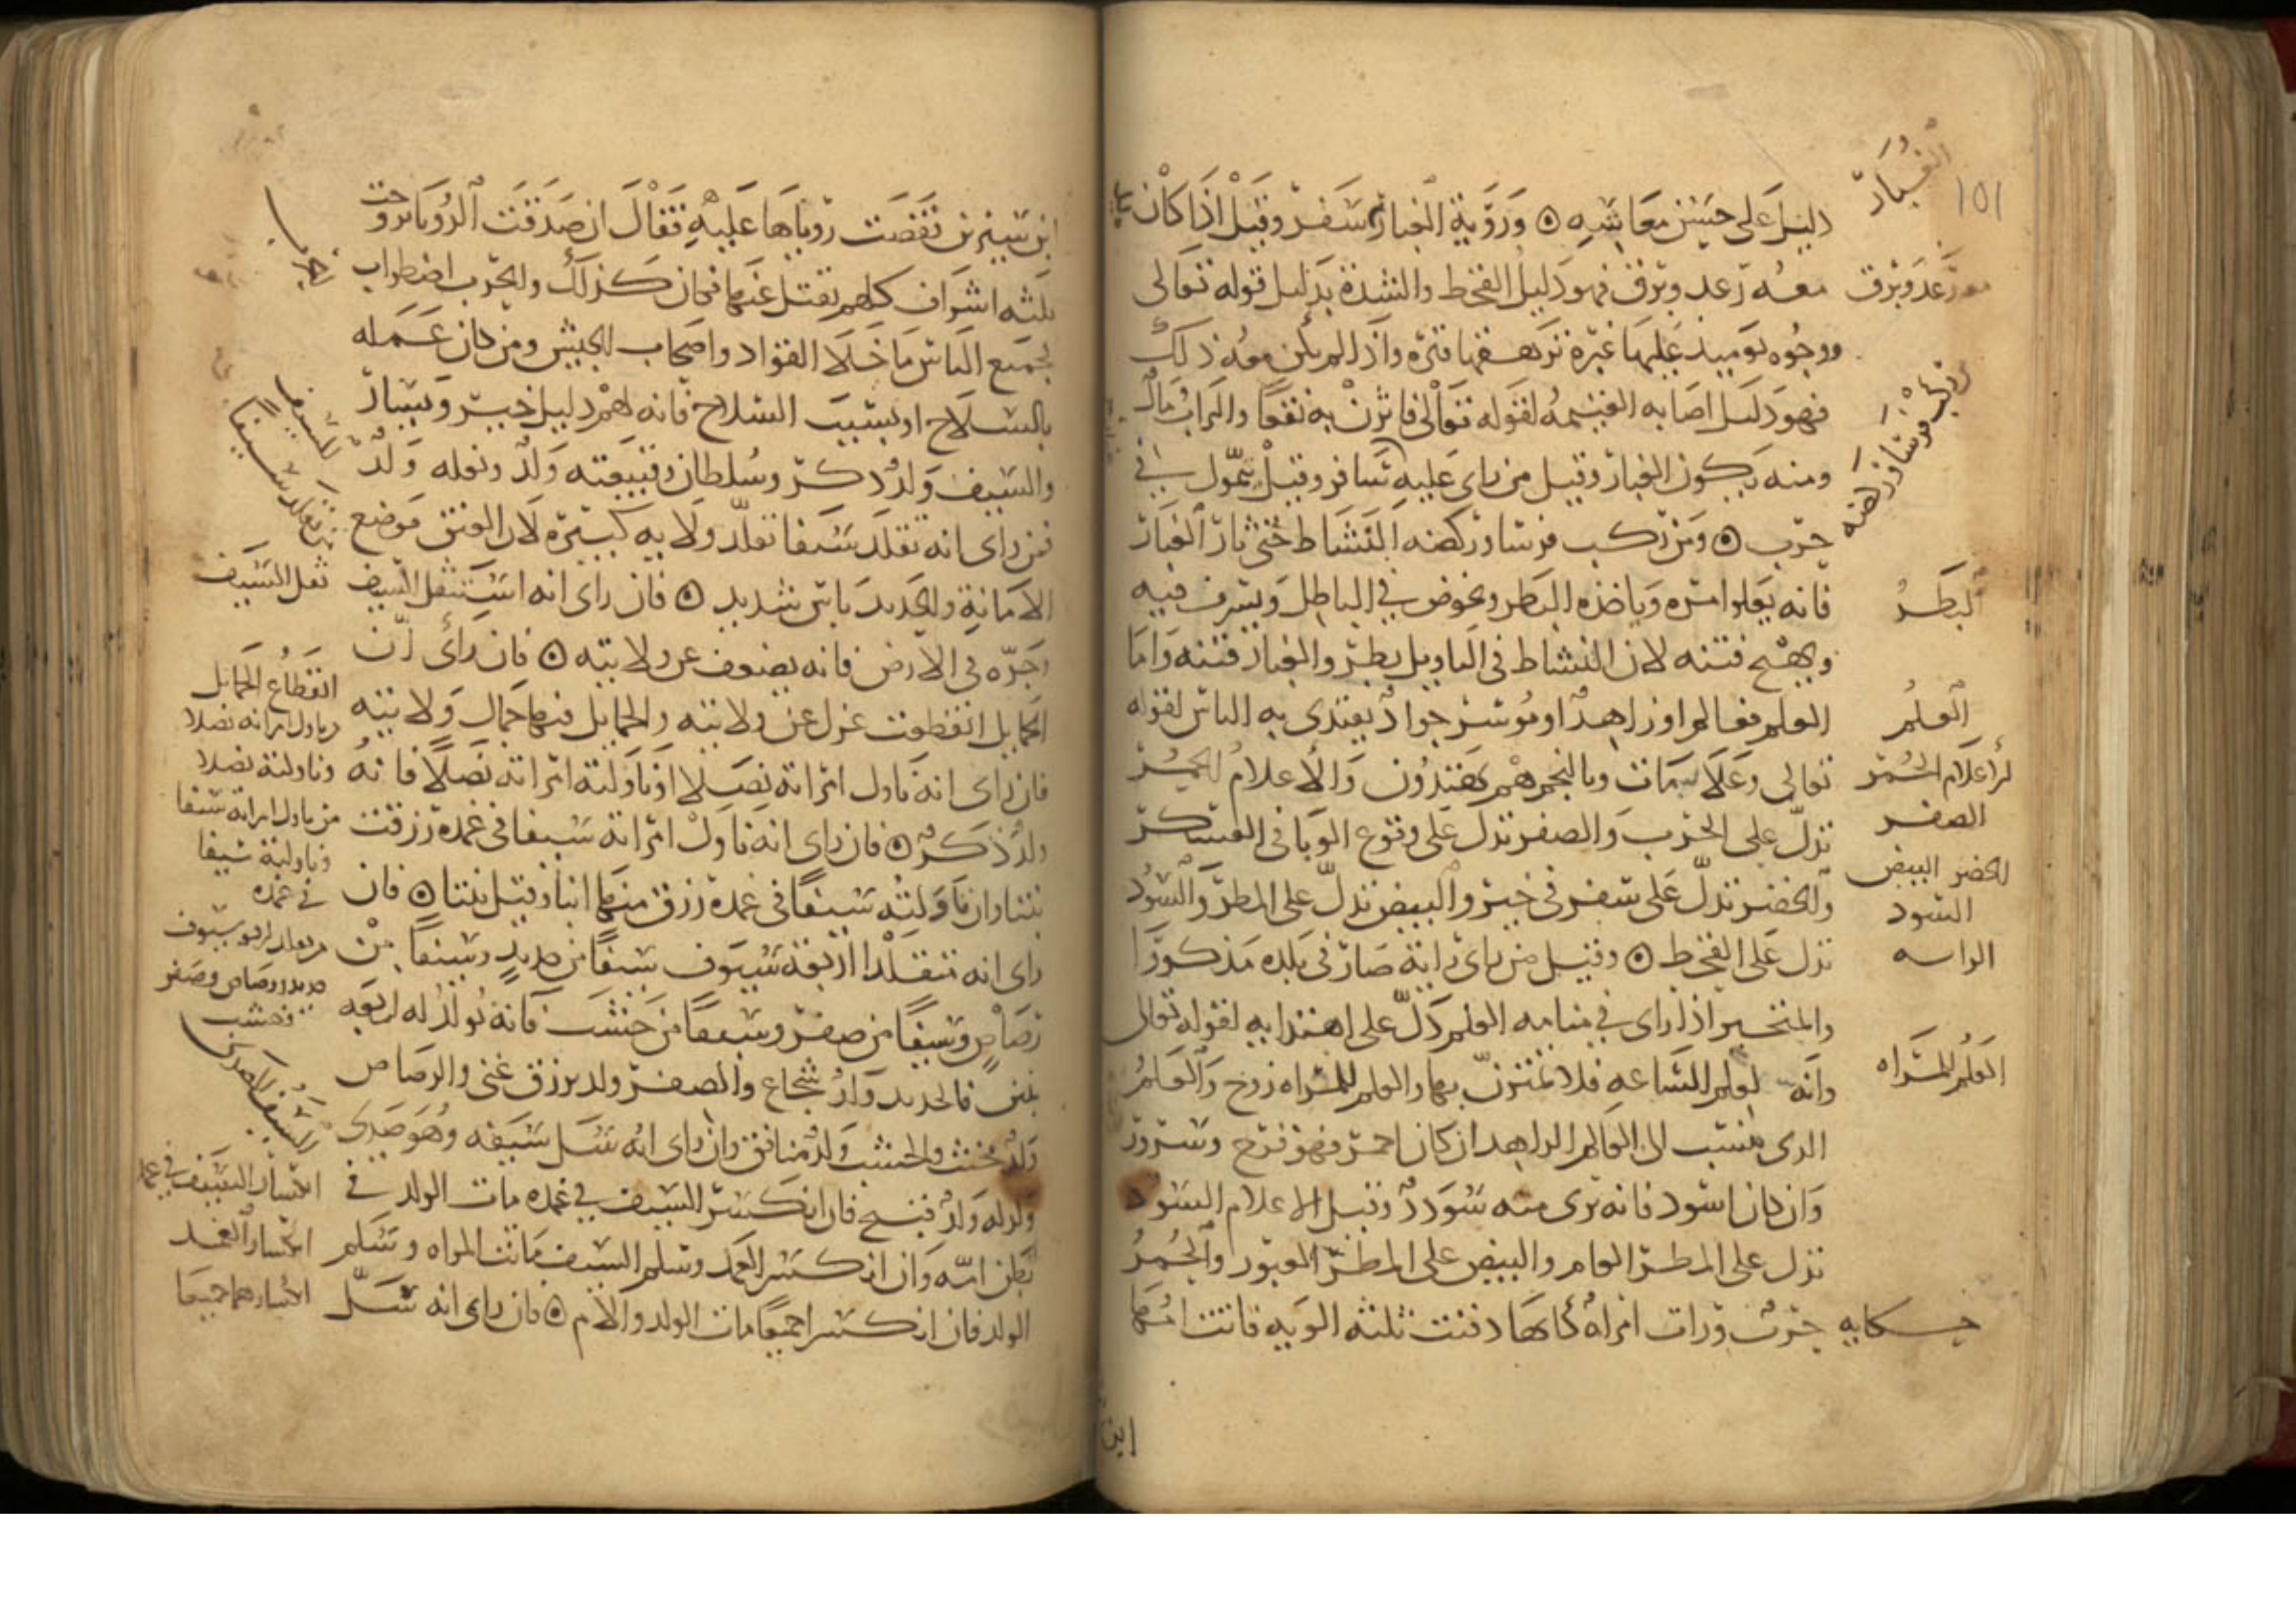 الغبار
دليل على حسن معاشه ۞ ورؤية الغبار سفر وقيل اذا كان
معه رعد وبرق فهو دليل القحط والشدة بدليل قوله تعالى
ووجوه يوميذ عليها غبرة ترهقها قترة واذا لم يكن معه ذلك
فهو دليل اصابه الغنيمه لقوله تعالى فاثرن به نقعا والتراب مال
ومنه يكون الغبار وقيل من راى عليه سافر وقيل تمول في
حرب ۞ ومن ركب فرسا وركضه النشاط حتى ثار الغبار
فانه يعلوا امره وياخذه البطر ويخوض في الباطل ويسرف فيه
ويهيج فتنه لان النشاط في التاويل بطر والغبار فتنه واما
العلم فعالم او زاهد او موسر جواد يقتدى به الناس لقوله
تعالى وعلامات وبالنجم هم يهتدون والاعلام الحمر
تدل على الحرب والصفر تدل على وقوع الوبا في العسكر
والخضر تدل على سفر في خير والبيض تدل على المطر والسود
تدل على القحط ۞ وقيل من راى راية صار في بلده مذكورا
والمتحير اذا راى في منامه العلم دل على اهتدايه لقوله تعالى
وانه لعلم للساعه فلا تمترن بها والعلم للمراه زوج والعلم
الدى ينسب الى العالم الزاهد ان كان احمر فهو فرح وسرور
وان كان اسود فانه يرى منه سودد وقيل الاعلام السود
تدل على المطر العام والبيض على المطر العبور والحمر
حرب ورات امراة كانها دفنت ثلثه الويه فاتت امها
معه رعد وبرق
البطر
العلم
الاعلام الحمر
الصفر
الخضر البيض
السود
الرايه
العلم للمراه
حكايه
ابن
ابن سيرين فقصت روياها عليه فقال ان صدقت الرويا تزوجت
ثلثه اشراف كلهم يقتل عنها فكان كذلك والحرب اضطراب
لجميع الناس ما خلا القواد واصحاب الجيش ومن كان عمله
بالسلاح او بسبب السلاح فانه لهم دليل خير ويسار
والسيف ولد ذكر وسلطان وقبيعته ولد ونعله ولد
فمن راى انه تقلد سيفا تقلد ولايه كبيره لان العنق موضع
الامانة والحديد باس شديد ۞ فان راى انه استثقل السيف
وجره في الارض فانه يضعف عن ولايته ۞ فان راى ان
الحمايل انقطعت عزل عن ولايته والحمايل فيها جمال ولايته
فان راى انه ناول امراته نصلا او ناولته امراته نصلا فانه
ولد ذكر ۞ فان راى انه ناول امراته سيفا في غمده رزقت
بنتا وان ناولته سيفا في غمده رزق منها ابنا وقيل بنتا ۞ فان
راى انه تقلد اربعة سيوف سيفا من حديد وسيفا من
رصاص وسيفا من صفر وسيفا من خشب فانه يولد له اربعه
بنين فالحديد ولد شجاع والصفر ولد يرزق غنى والرصاص
ولد مخنث والخشب ولد منافق وان راى انه سل سيفه وهو صدى
ولد له ولد قبيح فان انكسر السيف في غمده مات الولد في
بطن امه وان انكسر الغمد وسلم السيف ماتت المراه وسلم
الولد فان انكسرا جميعا مات الولد والام ۞ فان راى انه سل
الحرب
السيف
من تقلد سيفا
ثقل السيف
انقطاع الحمايل
ناول امراته نصلا
وناولته نصلا
من ناول امراته سيفا
وناولته سيفا
في غمده
حديد ورصاص وصفر
وخشب
السيف الصدى
انكسار السيف في غمد
انكسار الغمد
انكسارهما جميعا